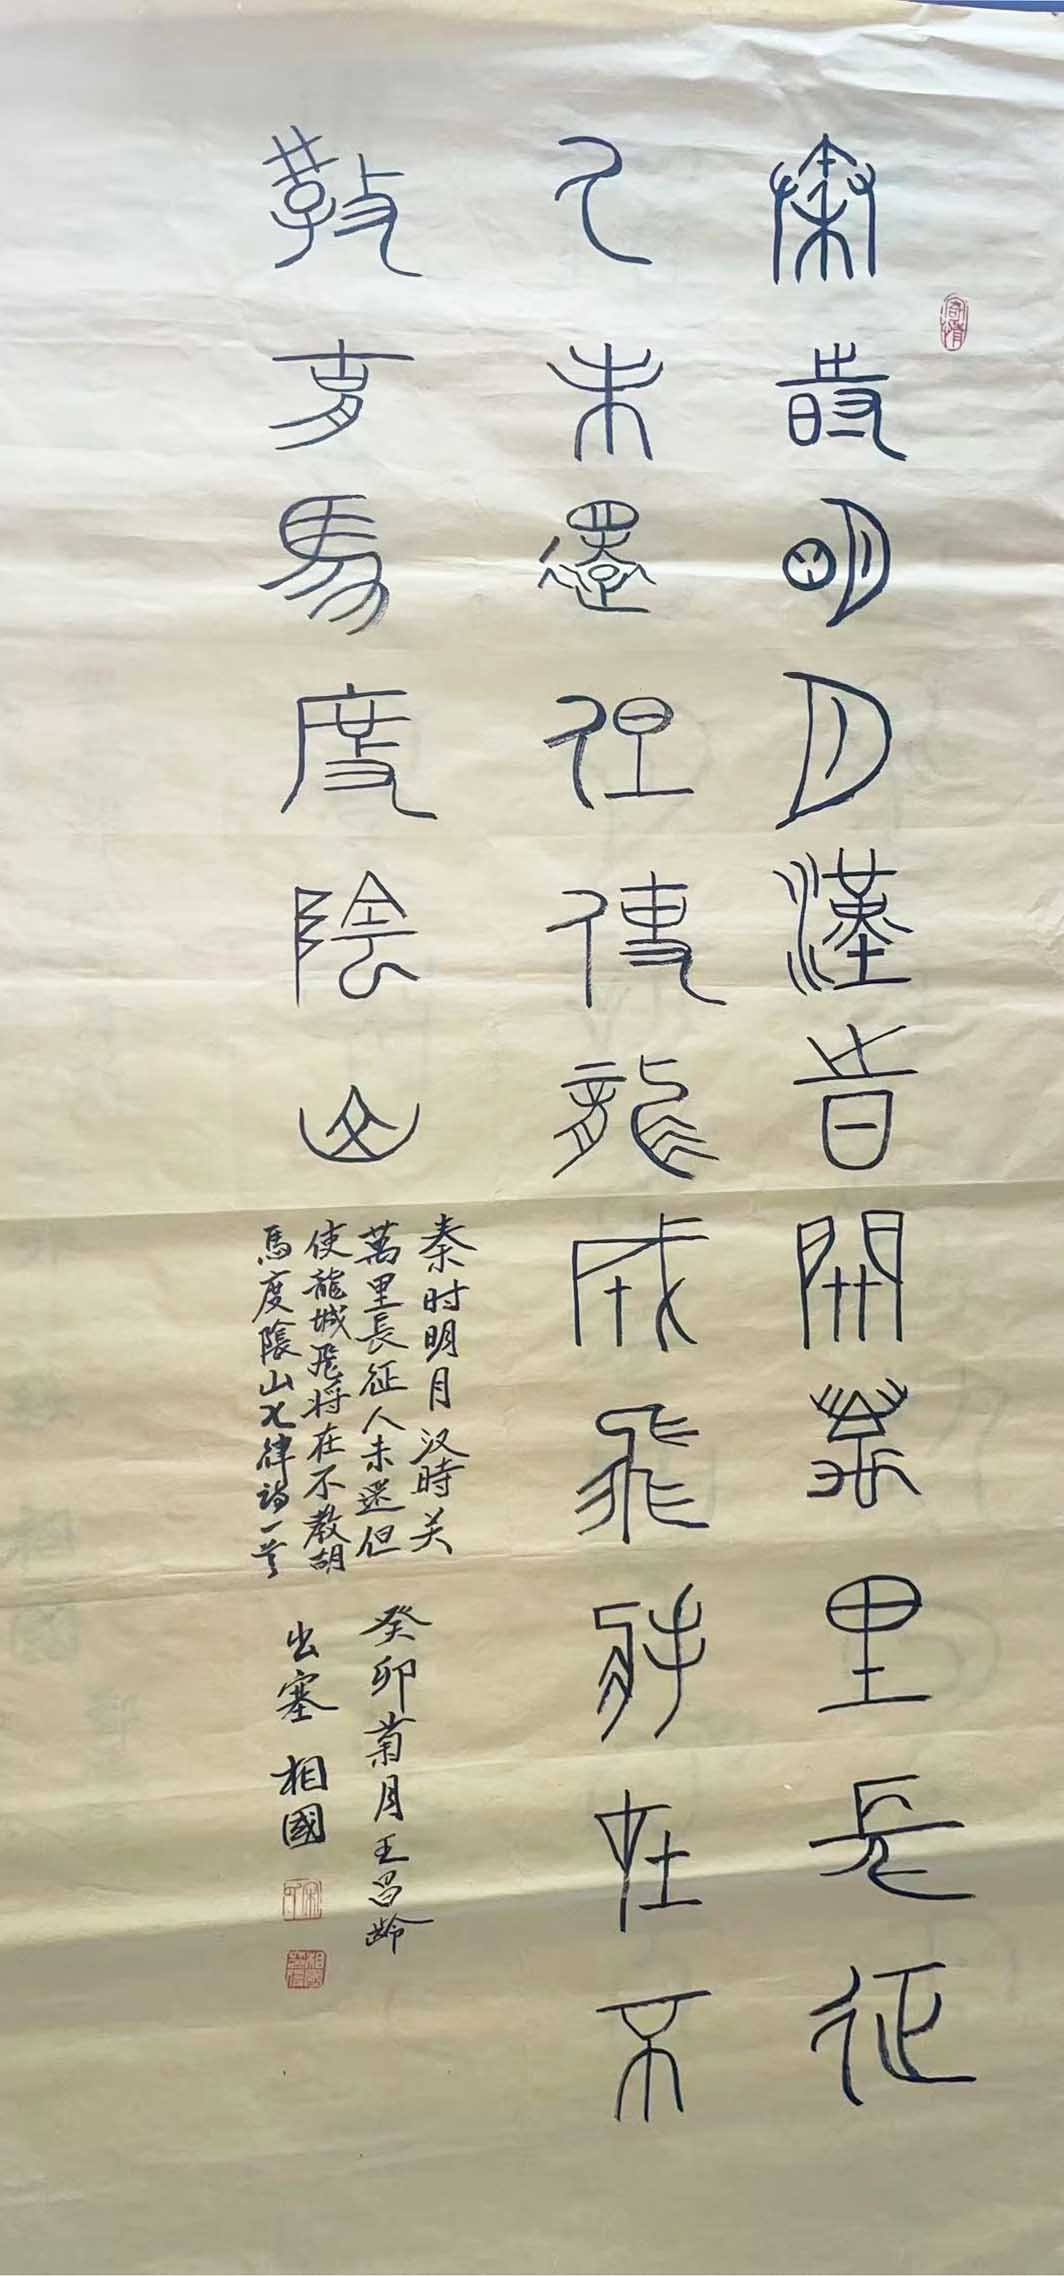 寄情
秦時明月漢旹關萬里長征
人未還但使龍城飛將在不
教胡馬度陰山
秦时明月汉時关
萬里長征人未還但
使龍城飛将在不教胡
馬度陰山七律诗一首
癸卯菊月王昌龄
出塞 相國